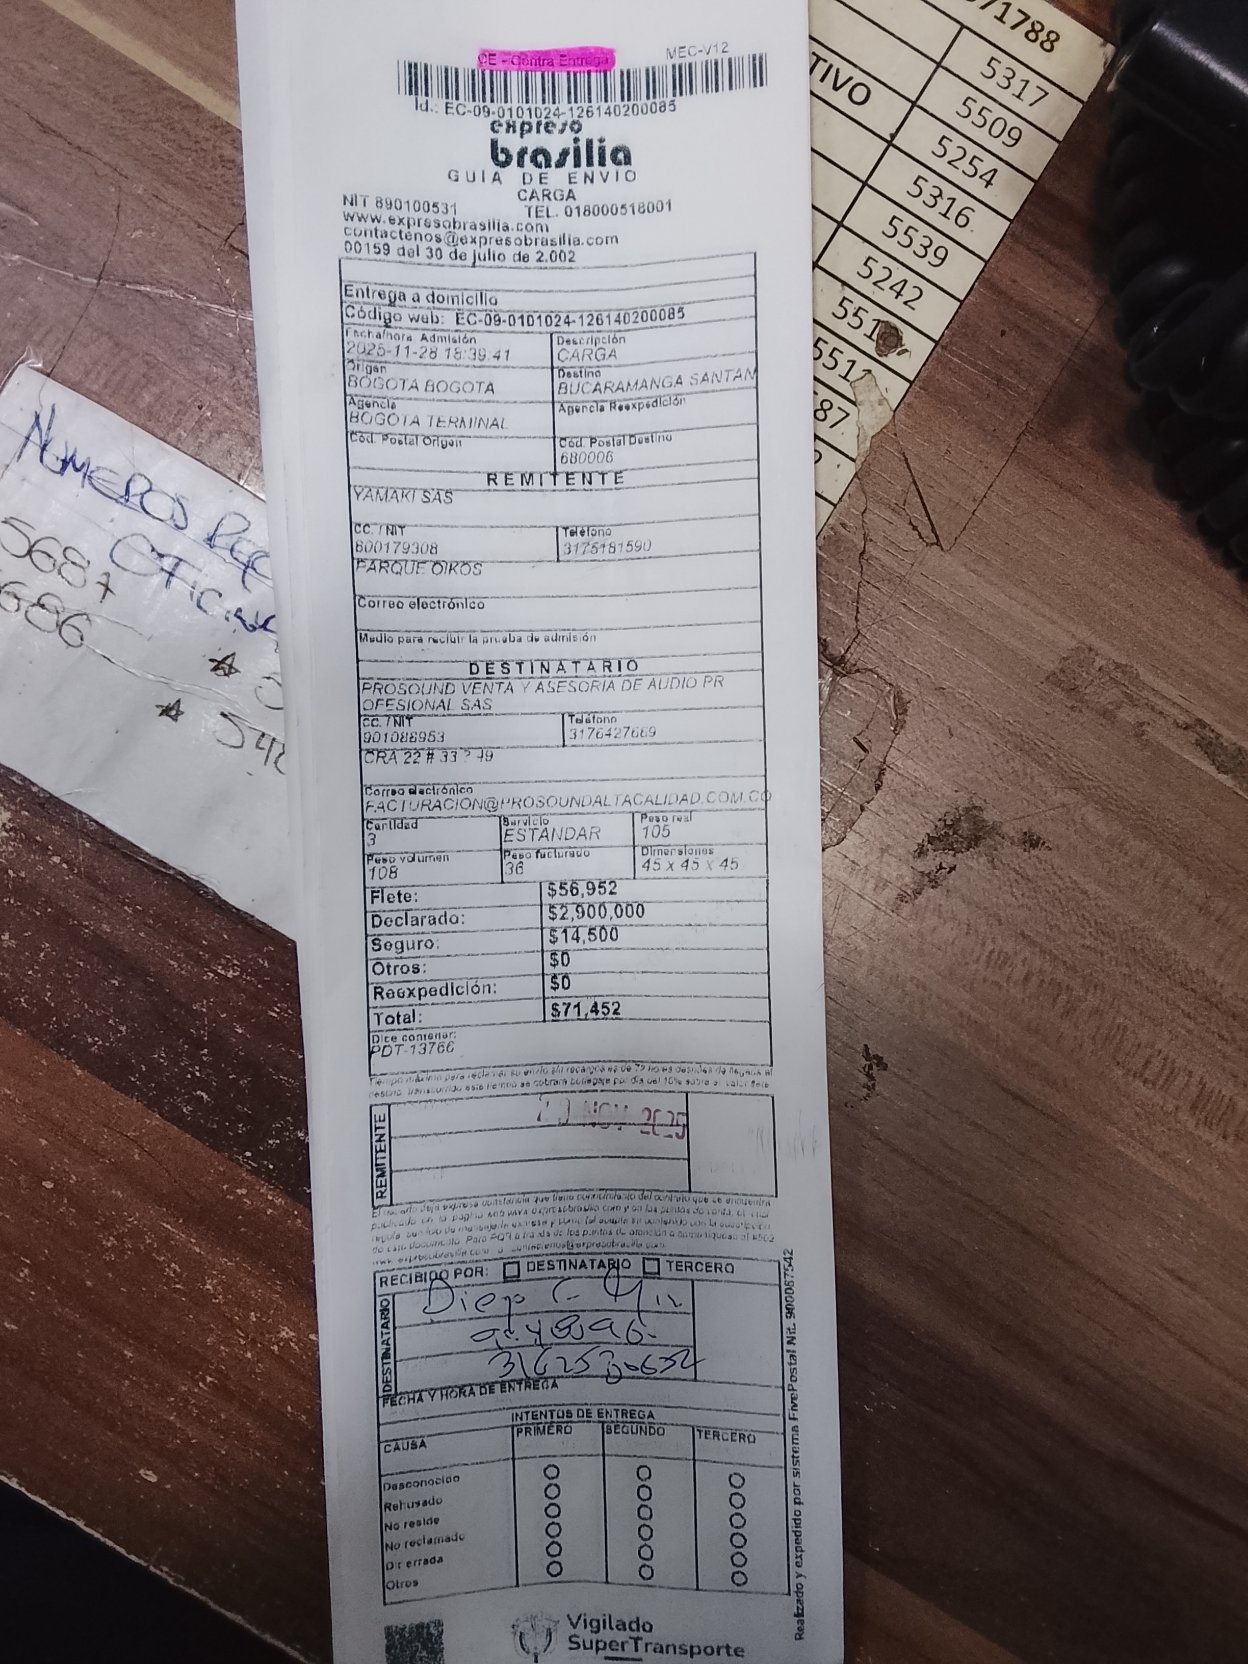 CE - Contra Entrega
MEC-V12
Id.: EC-09-0101024-126140200085
expreso
brasilia
GUIA DE ENVIO
CARGA
NIT 890100531 TEL. 018000518001
www.expresobrasilia.com
contactenos@expresobrasilia.com
00159 del 30 de julio de 2.002
Entrega a domicilio
Código web: EC-09-0101024-126140200085
Fecha/hora Admisión Descripción
2025-11-28 18:39:41 CARGA
Origen Destino
BOGOTA BOGOTA BUCARAMANGA SANTAN
Agencia Agencia Reexpedición
BOGOTA TERMINAL
Cód. Postal Origen Cód. Postal Destino
680006
REMITENTE
YAMAKI SAS
CC. / NIT Teléfono
800179308 3175181590
PARQUE OIKOS
Correo electrónico
Medio para recibir la prueba de admisión
DESTINATARIO
PROSOUND VENTA Y ASESORIA DE AUDIO PR
OFESIONAL SAS
CC. / NIT Teléfono
901088953 3176427669
CRA 22 # 33 ? 49
Correo electrónico
FACTURACION@PROSOUNDALTACALIDAD.COM.CO
Cantidad Servicio Peso real
3 ESTANDAR 105
Peso volumen Peso facturado Dimensiones
108 36 45 x 45 x 45
Flete: $56,952
Declarado: $2,900,000
Seguro: $14,500
Otros: $0
Reexpedición: $0
Total: $71,452
Dice contener:
PDT-13766
REMITENTE
NOV 2025
RECIBIDO POR: DESTINATARIO TERCERO
DESTINATARIO
Diego
FECHA Y HORA DE ENTREGA
INTENTOS DE ENTREGA
CAUSA PRIMERO SEGUNDO TERCERO
Desconocido
Rehusado
No reside
No reclamado
Dir errada
Otros
Vigilado
SuperTransporte
Realizado y expedido por sistema FivePostal Nit. 900087542
NUMEROS
5687
5686
71788
TIVO
5317
5509
5254
5316
5539
5242
551
5511